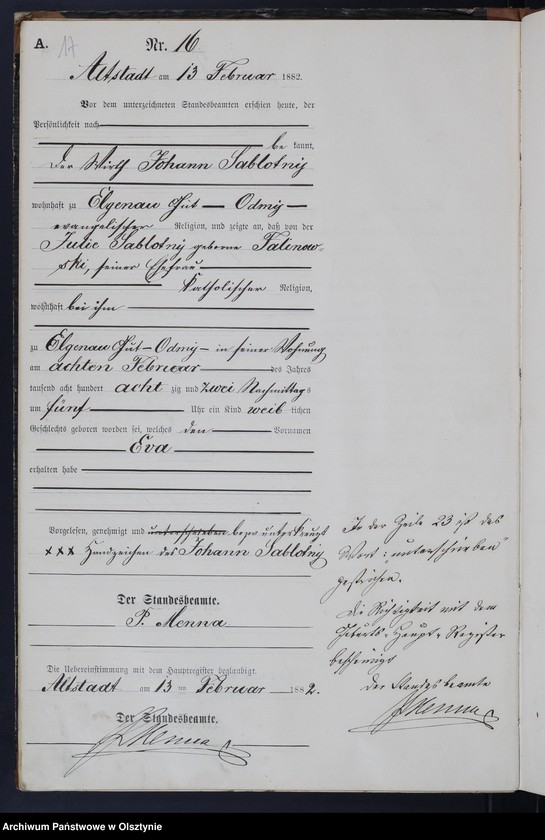 A. 17 Nr. 16
Altstadt am 13 Februar 1882.
Vor dem unterzeichneten Standesbeamten erschien heute, der
Persönlichkeit nach
be kannt,
der Wirth Johann Sablotny
wohnhaft zu Elgenau Gut – Odmy –
evangelischer Religion, und zeigte an, daß von der
Julie Sablotny geborne Falinow-
ski, seiner Ehefrau
katholischer Religion,
wohnhaft bei ihm
zu Elgenau Gut – Odmy – in seiner Wohnung
am achten Februar des Jahres
tausend acht hundert acht zig und zwei Nachmittags
um fünf Uhr ein Kind weib lichen
Geschlechts geboren worden sei, welches den Vornamen
Eva
erhalten habe
Vorgelesen, genehmigt und unterschrieben bezw unterkreuzt
xxx Handzeichen des Johann Sablotny
Der Standesbeamte.
P. Menna
Die Uebereinstimmung mit dem Hauptregister beglaubigt.
Altstadt am 13 ten Februar 1882.
Der Standesbeamte.
P Menna
In der Zeile 23 ist das
Wort: "unterschrieben"
gestrichen.
Die Richtigkeit mit dem
Geburts-Haupt-Register
bescheinigt
Der Standesbeamte
P Menna
Archiwum Państwowe w Olsztynie